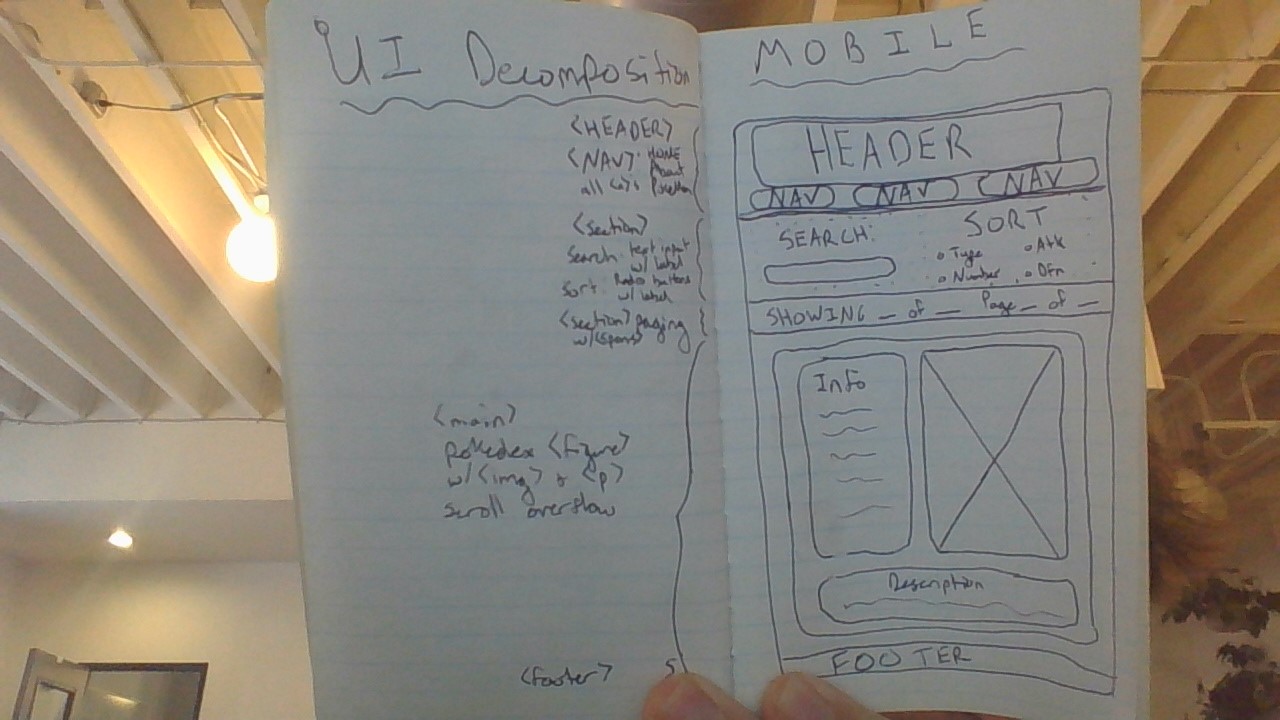 UI Decomposition
<HEADER>
<NAV>: HOME
About
all <a>s Pokedex
<section>
Search: text input
w/ label
Sort: Radio buttons
w/ label
<section> paging
w/ <spans>
<main>
pokedex <figure>
w/ <img> & <p>
scroll overflow
<footer>
MOBILE
HEADER
NAV NAV NAV
SEARCH: SORT
Type Atk
Number Dfn
SHOWING _ of _ Page _ of _
Info
Description
FOOTER